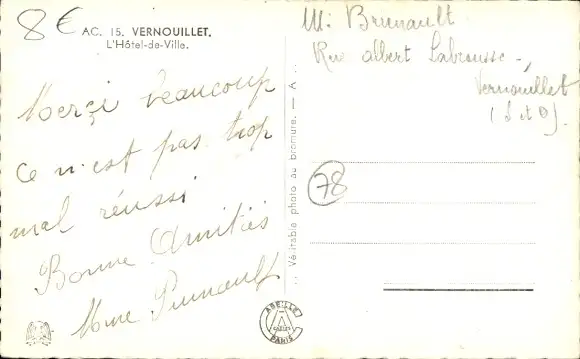 8 €
AC. 15. VERNOUILLET.
L'Hôtel-de-Ville.
Merçi beaucoup
ce n'est pas trop
mal réussi
Bonne Amitiés
Mme Prunault
.. Véritable photo au bromure. — A ..
M. Brunault
Rue Albert Labrousse -,
Vernouillet
(S et O).
78
ABEILLE
PARIS